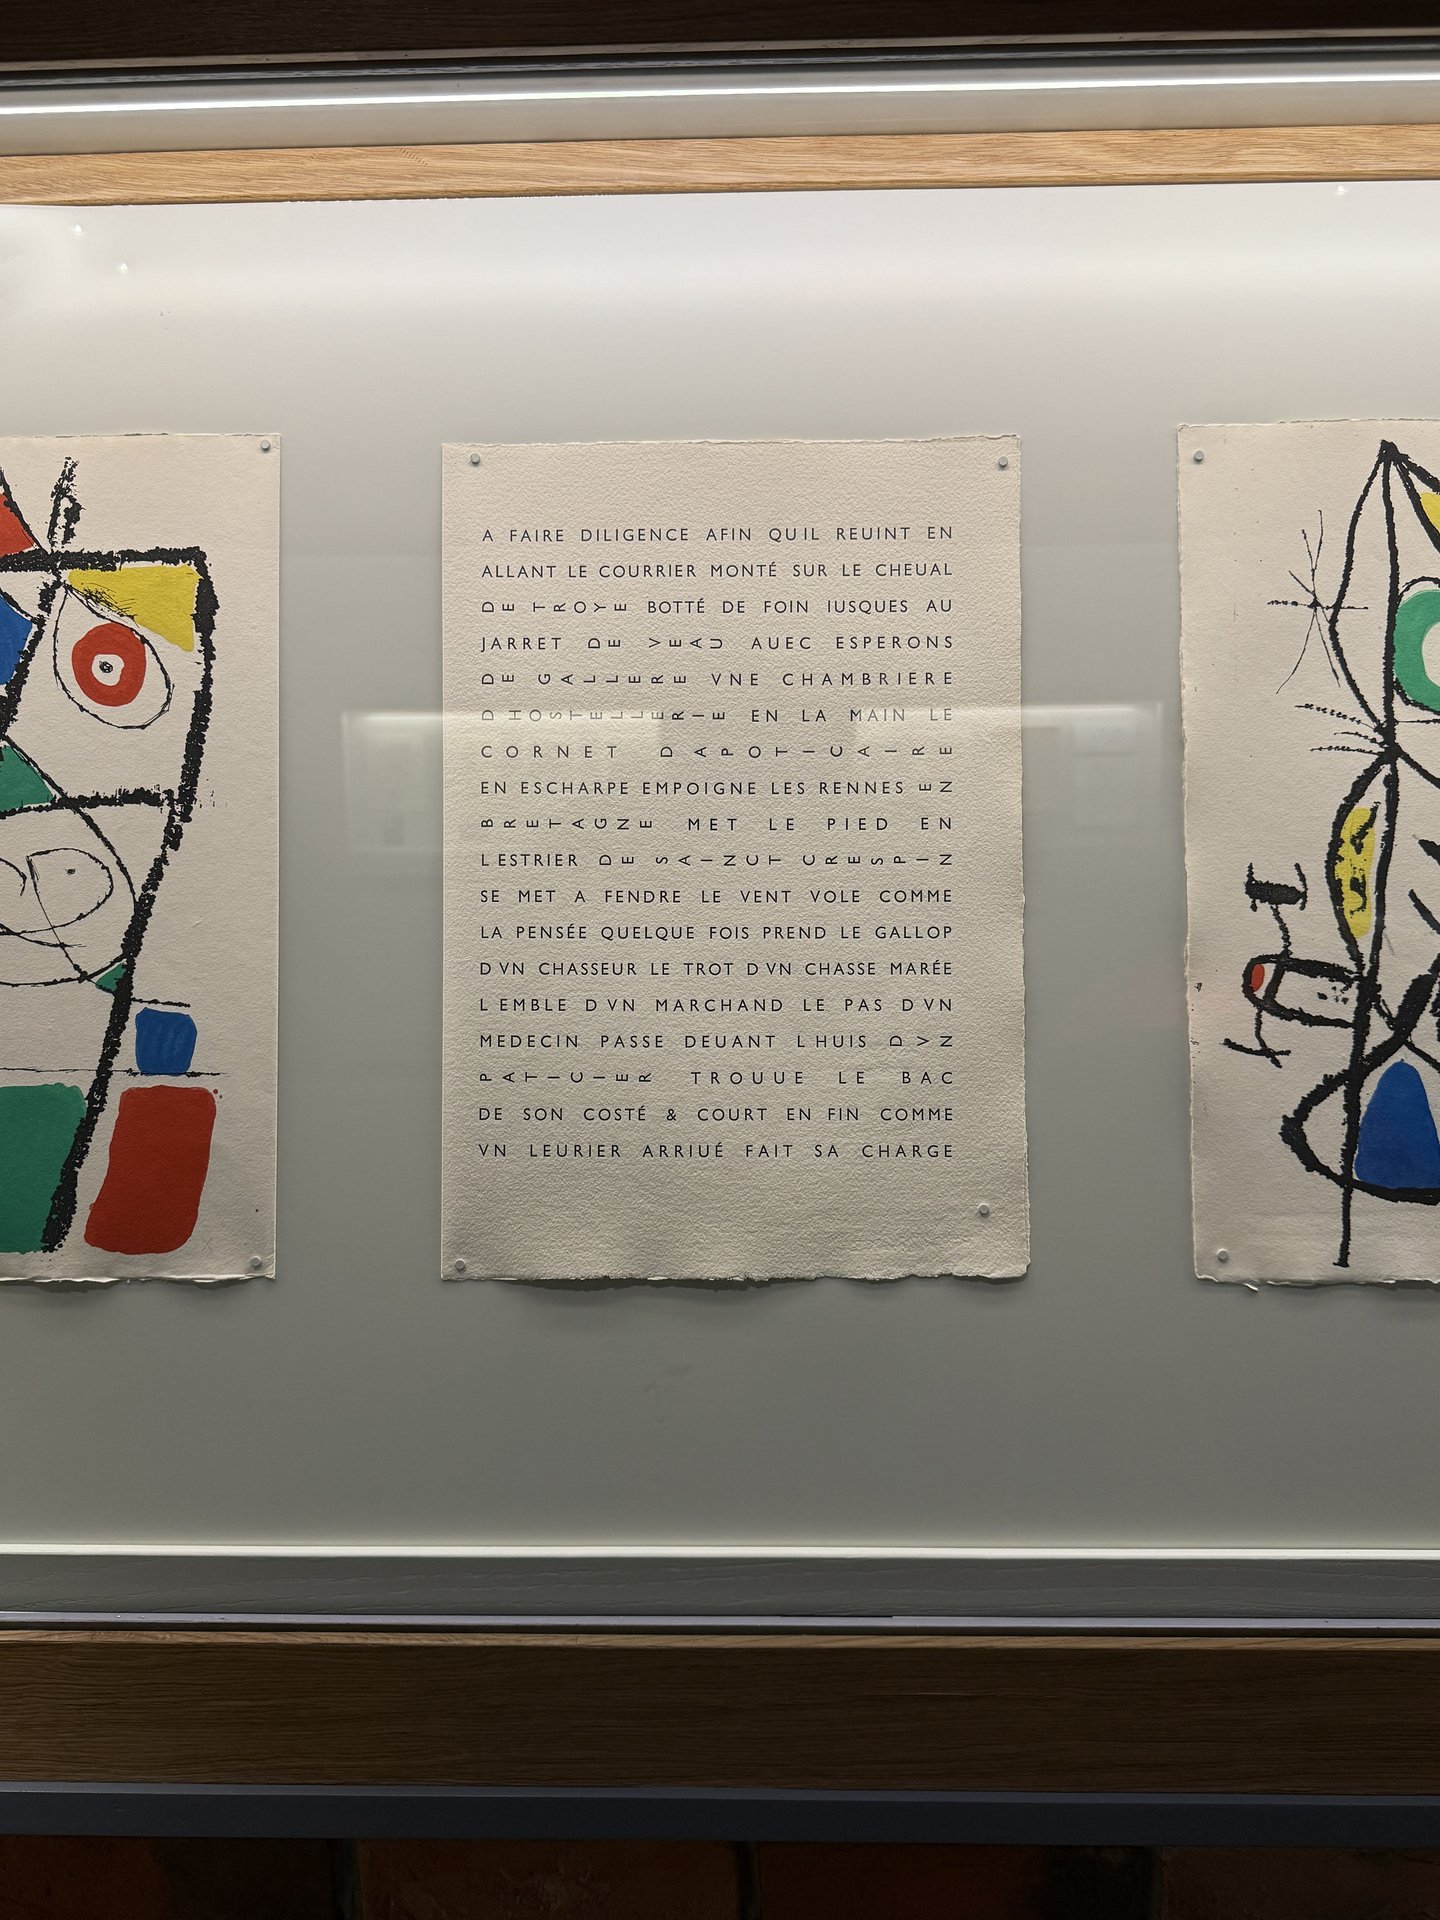 A FAIRE DILIGENCE AFIN QUIL REUINT EN
ALLANT LE COURRIER MONTÉ SUR LE CHEUAL
DE TROYE BOTTÉ DE FOIN IUSQUES AU
JARRET DE VEAU AUEC ESPERONS
DE GALLERE VNE CHAMBRIERE
DHOSTELLERIE EN LA MAIN LE
CORNET DAPOTICAIRE
EN ESCHARPE EMPOIGNE LES RENNES EN
BRETAGNE MET LE PIED EN
LESTRIER DE SAINCT CRESPIN
SE MET A FENDRE LE VENT VOLE COMME
LA PENSÉE QUELQUE FOIS PREND LE GALLOP
DVN CHASSEUR LE TROT DVN CHASSE MARÉE
LEMBLE DVN MARCHAND LE PAS DVN
MEDECIN PASSE DEUANT LHUIS DVN
PATICIER TROUUE LE BAC
DE SON COSTÉ & COURT EN FIN COMME
VN LEURIER ARRIUÉ FAIT SA CHARGE